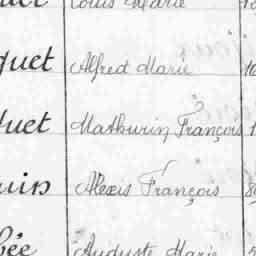 Louis Marie
quet Alfred Marie
quet Mathurin François
uin Alexis François
bée Auguste Marie